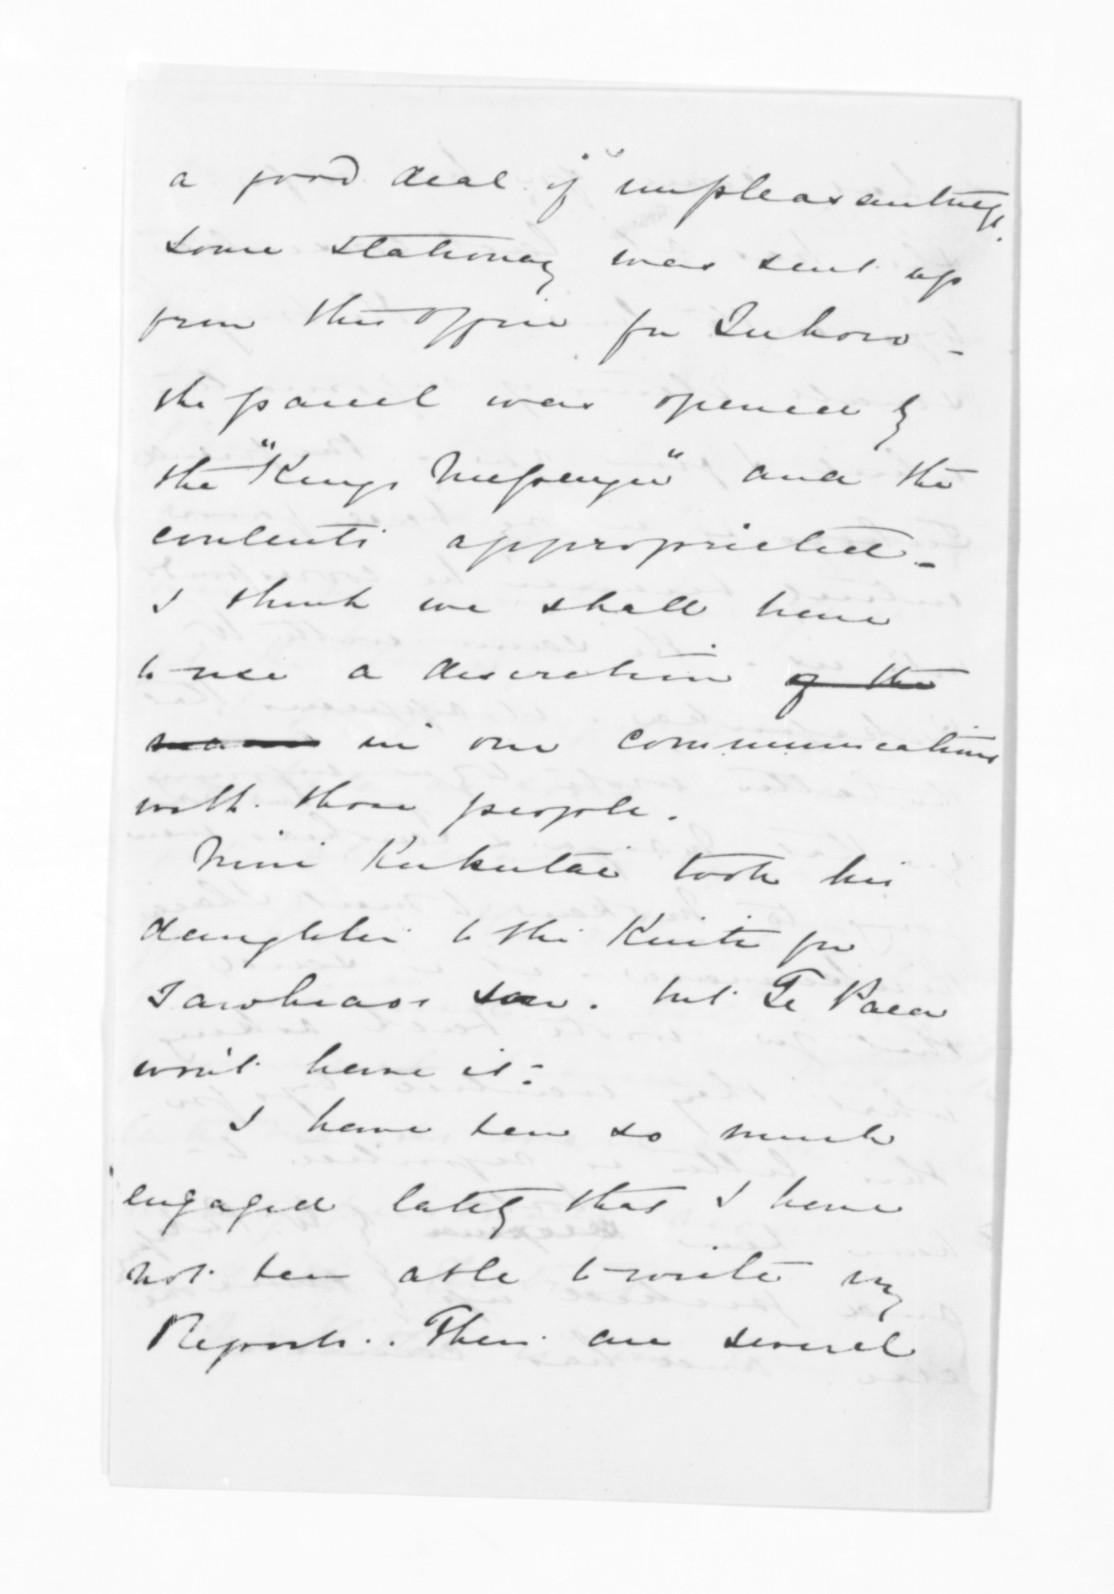 a good deal of unpleasantness.
some stationery was sent up
from this office for Tukoro -
the parcel was opened by
the "Kings Messenger" and the
contents appropriated -
I think we shall have
to use a discretion of the
in our communications
with these people.
Nini Kukutai took his
daughter to the Kuiti for
Tawhiaos son. but Te Paea
won't have it:
I have been so much
engaged lately that I have
not been able to write my
Reports. There are several